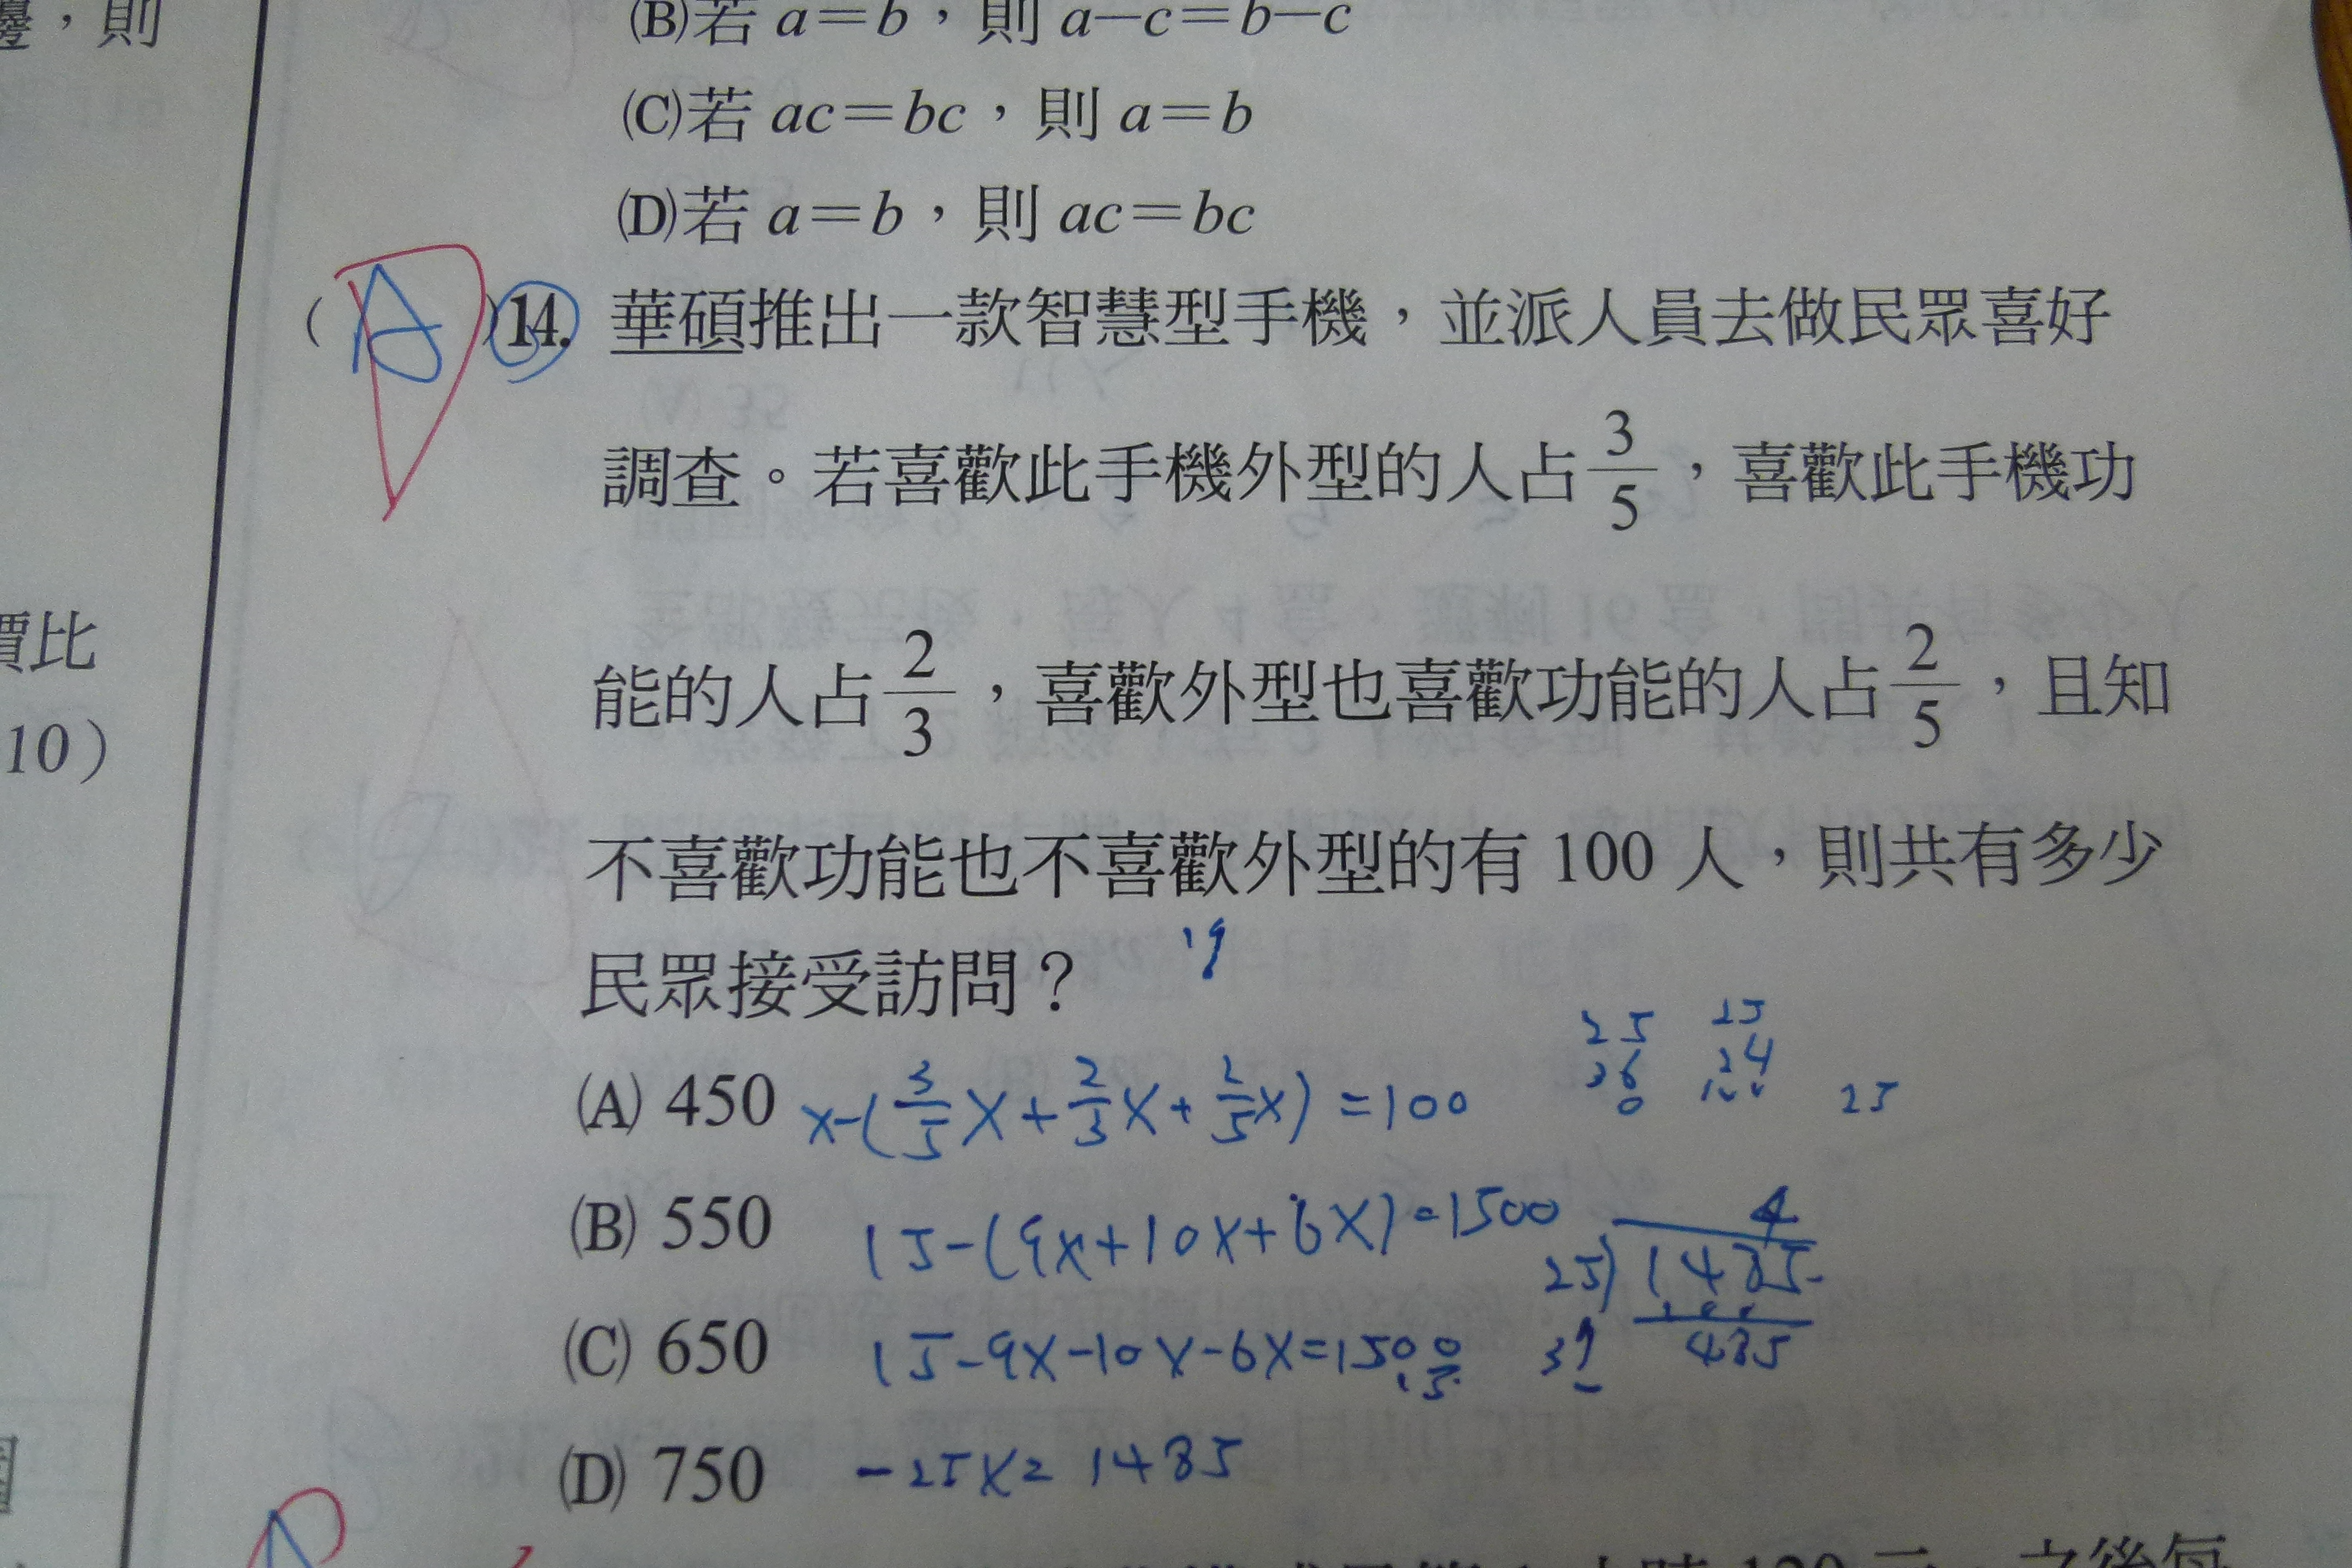 邊，則
(B)若 a=b，則 a−c=b−c
(C)若 ac=bc，則 a=b
(D)若 a=b，則 ac=bc
( A )14. 華碩推出一款智慧型手機，並派人員去做民眾喜好
調查。若喜歡此手機外型的人占3/5，喜歡此手機功
能的人占2/3，喜歡外型也喜歡功能的人占2/5，且知
不喜歡功能也不喜歡外型的有 100 人，則共有多少
民眾接受訪問？
(A) 450
x-(3/5x+2/3x+2/5x)=100
(B) 550
15-(9x+10x+6x)=1500
(C) 650
15-9x-10x-6x=1500
15
(D) 750
-25x=1485
19
25
36
0
25
24
100
25
4
25)1485
485
39
價比
10）